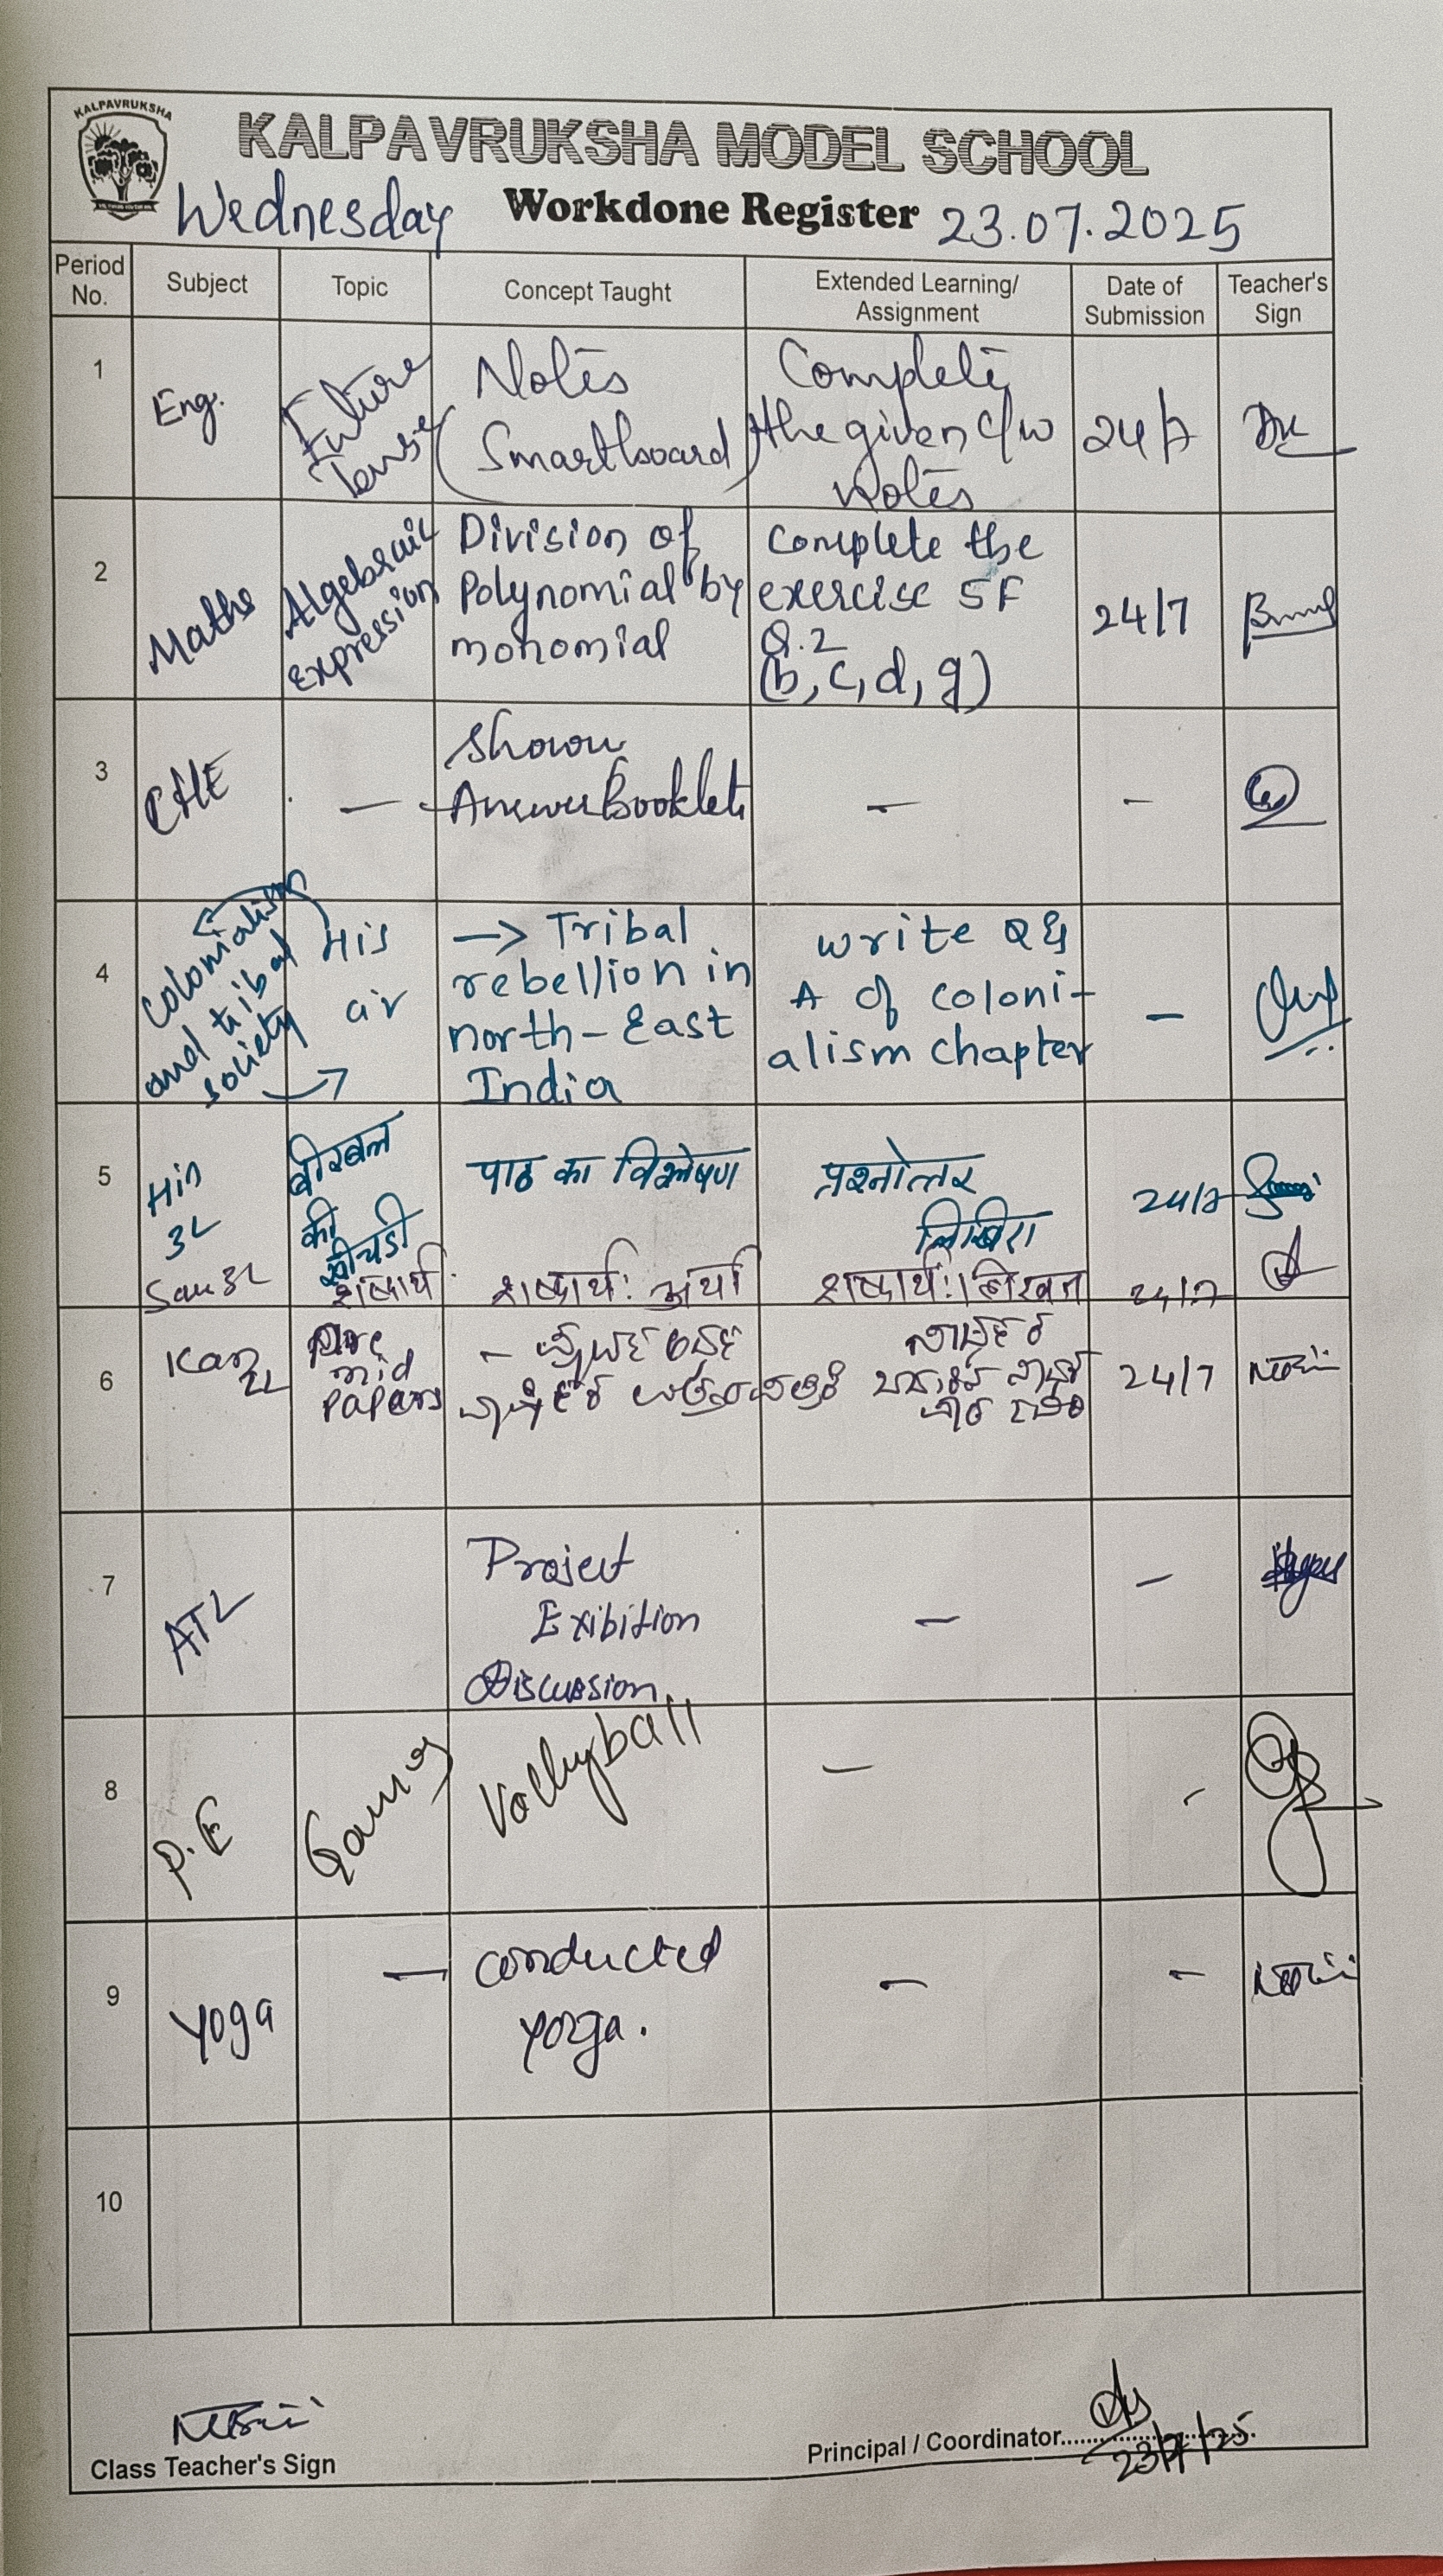 KALPAVRUKSHA
KALPAVRUKSHA MODEL SCHOOL
Wednesday Workdone Register 23.07.2025
Period No. Subject Topic Concept Taught Extended Learning/ Assignment Date of Submission Teacher's Sign
1 Eng. Future Tense Notes (Smartboard) Complete the given c/w Notes 24/7
2 Maths Algebraic expression Division of Polynomial by monomial complete the exercise 5F Q.2 (b, c, d, g) 24/7
3 CHE — Shown Answer Booklet — -
4 His Colonialism and tribal society → Tribal rebellion in north-East India write Q & A of coloni-alism chapter —
5 Hin 3L बीरबल की खीचडी पाठ का विश्लेषण प्रश्नोत्तर लिखिए 24/7
San 3L शब्दार्थ शब्दार्थः शब्दार्थः। लिखत 24/7
6 Kan 2L mid Papers 24/7
7 ATL Project Exibition Discussion — —
8 P.E Games Volleyball — -
9 Yoga — conducted yoga. — -
10
Class Teacher's Sign
Principal / Coordinator
23/7/25